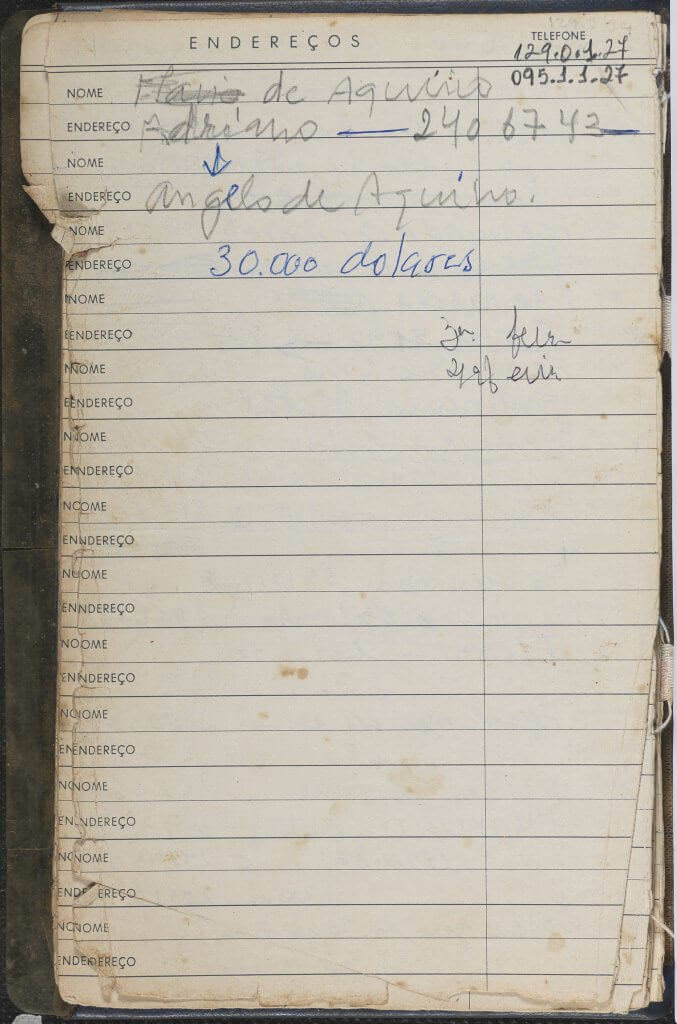 ENDEREÇOS
TELEFONE
129.0.1.27
095.1.1.27
NOME Flavio de Aquino
ENDEREÇO Adriano — 240 67 43
NOME ↓
ENDEREÇO Angelo de Aquino.
NOME
ENDEREÇO 30.000 dolares
NOME
ENDEREÇO
NOME
ENDEREÇO
NOME
ENDEREÇO
NOME
ENDEREÇO
NOME
ENDEREÇO
NOME
ENDEREÇO
NOME
ENDEREÇO
NOME
ENDEREÇO
NOME
ENDEREÇO
NOME
ENDEREÇO